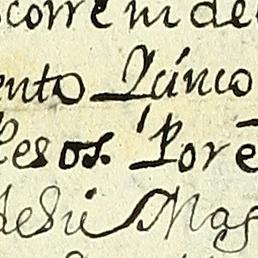 corre ni de
ento Ycinco
Pesos. Por e
de su Mag